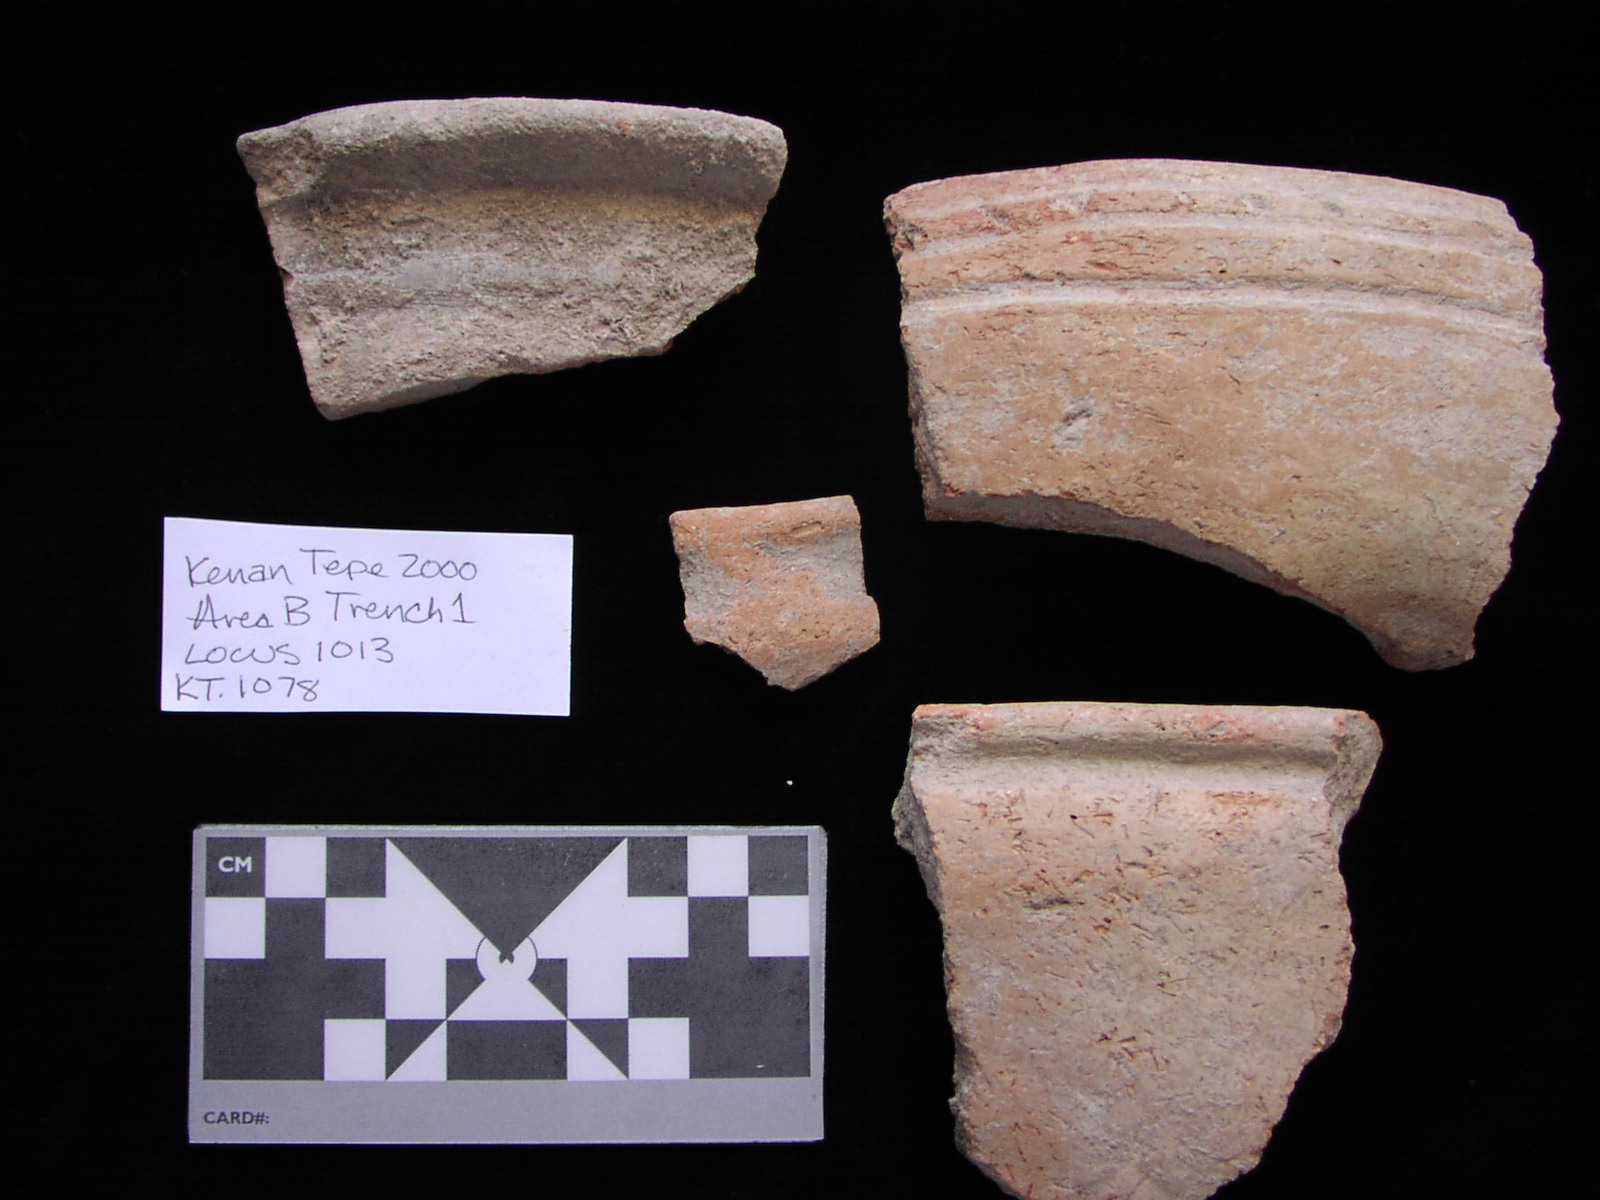 Kenan Tepe 2000
Area B Trench 1
Locus 1013
KT. 1078
CM
CARD#: